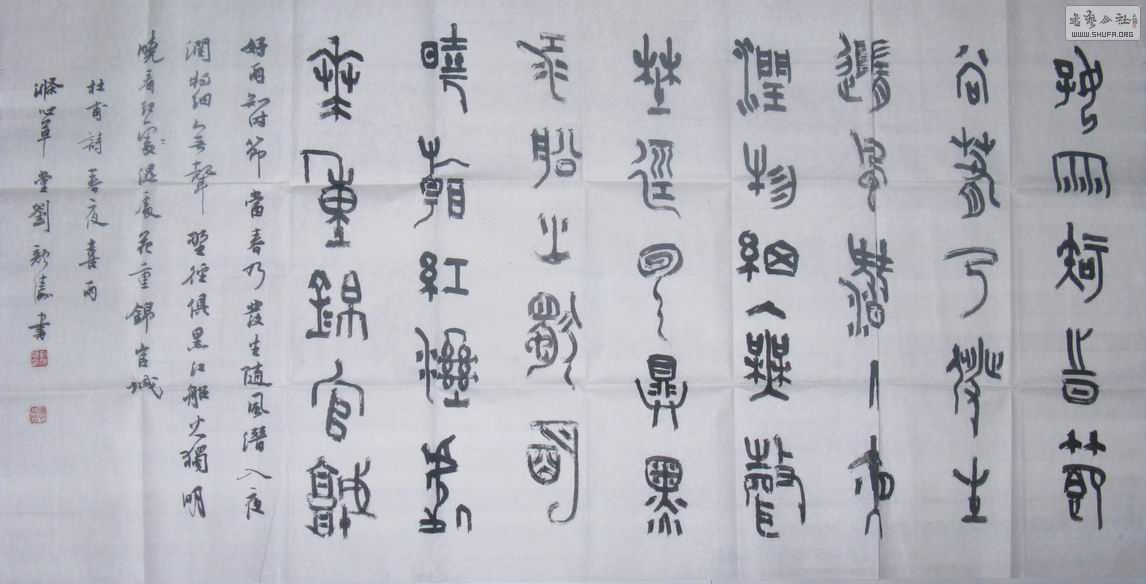 好雨知時節
當春乃發生
隨風潛入夜
潤物細無聲
野徑雲俱黑
江船火獨明
曉看紅濕處
花重錦官城
好雨知时節當春乃發生隨風潛入夜
潤物細無聲野徑俱黑江船火獨明
曉看紅處濕處花重錦官城
杜甫詩春夜喜雨
滌心草堂劉書
书艺公社
WWW.SHUFA.ORG